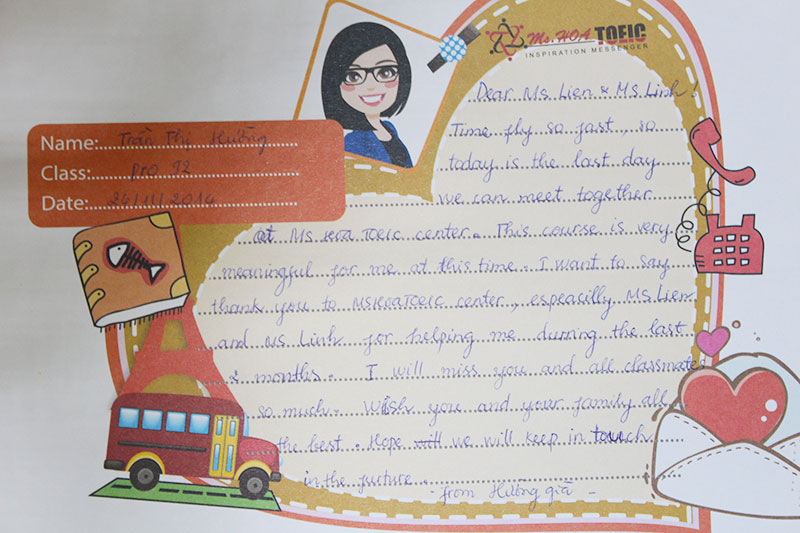 Ms. HOA TOEIC
INSPIRATION MESSENGER
Name: Trần Thị Hường
Class: Pro T2
Date: 24/11/2014
Dear Ms Lien & Ms Linh!
Time fly so fast, so
today is the last day
we can meet together
at Ms HOA TOEIC center. This course is very
meaningful for me at this time. I want to say
thank you to MSHOATOEIC center, espeacilly Ms Lien
and Ms Linh for helping me durring the last
months. I will miss you and all classmates
so much. Wish you and your family all
the best. Hope we will keep in touch
in the furture.
- from Hường già -